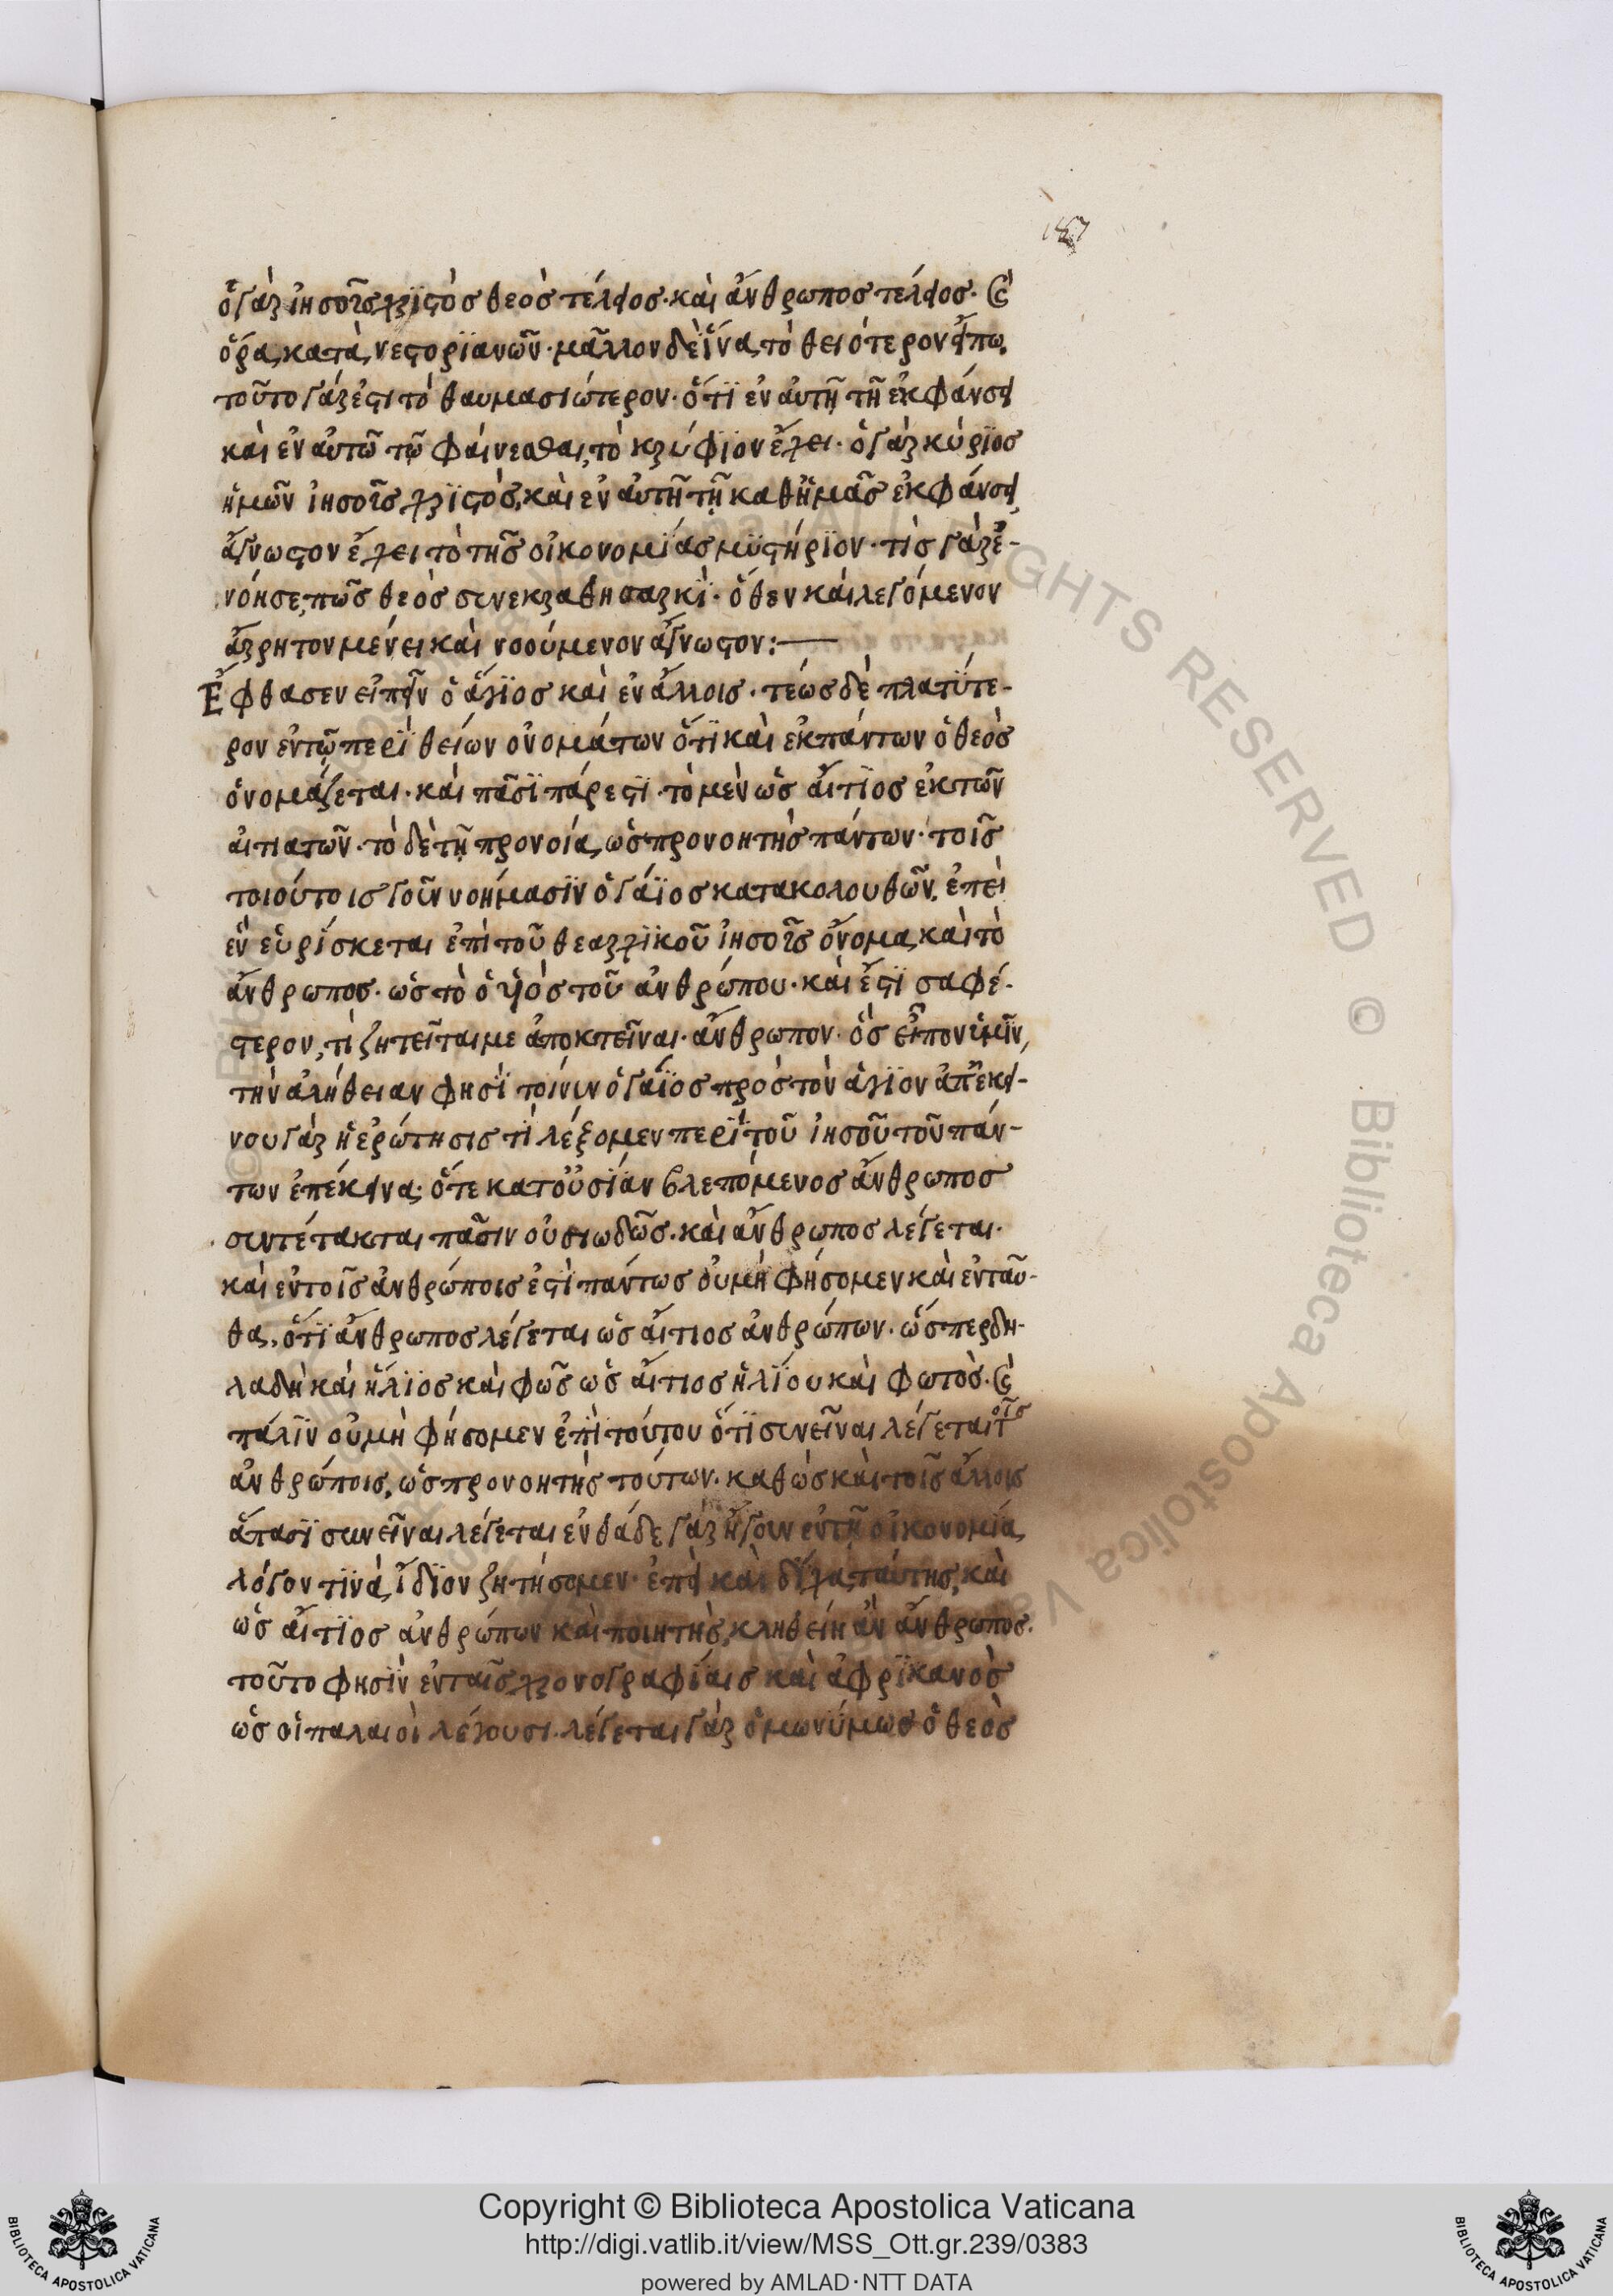 157
ὁ γὰρ ἰησοῦς χριστὸς θεὸς τέλειος· καὶ ἄνθρωπος τέλειος· καὶ
ὅρα, κατὰ νεστοριανῶν· μᾶλλον δὲ ἵνα τὸ θειότερον εἴπω,
τοῦτο γάρ ἐστι τὸ θαυμασιώτερον· ὅτι ἐν αὐτῇ τῇ ἐκφάνσει
καὶ ἐν αὐτῷ τῷ φαίνεσθαι, τὸ κρύφιον ἔχει· ὁ γὰρ κύριος
ἡμῶν ἰησοῦς χριστὸς, καὶ ἐν αὐτῇ τῇ καθ' ἡμᾶς ἐκφάνσει
ἄγνωστον ἔχει τὸ τῆς οἰκονομίας μυστήριον· τίς γὰρ ἐ-
νόησε, πῶς θεὸς συνεκράθη σαρκὶ· ὅθεν καὶ λεγόμενον
ἄρρητον μένει καὶ νοούμενον ἄγνωστον:—
Ἔφθασεν εἰπεῖν ὁ ἅγιος καὶ ἐν ἄλλοις· τέως δὲ πλατύτε-
ρον ἐν τῷ περὶ θείων ὀνομάτων ὅτι καὶ ἐκ πάντων ὁ θεὸς
ὀνομάζεται· καὶ πᾶσι πάρεστι· τὸ μὲν ὡς αἴτιος ἐκ τῶν
αἰτιατῶν· τὸ δὲ τῇ προνοία, ὡς προνοητὴς πάντων· τοῖς
τοιούτοις γοῦν νοήμασιν ὁ γάϊος κατακολουθῶν, ἐπεὶ
ἓν εὑρίσκεται ἐπὶ τοῦ θεαρχικοῦ ἰησοῦς ὄνομα, καὶ τὸ
ἄνθρωπος· ὡς τὸ ὁ υἱὸς τοῦ ἀνθρώπου· καὶ ἔστι σαφέ-
στερον, τί ζητεῖταί με ἀποκτεῖναι· ἄνθρωπον· ὃς εἶπον ὑμῖν,
τὴν ἀλήθειαν φησὶ τοίνυν ὁ γάϊος πρὸς τὸν ἅγιον ἀπ' ἐκεί-
νου γὰρ ἡ ἐρώτησις τί λέξομεν περὶ τοῦ ἰησοῦ τοῦ πάν-
των ἐπέκεινα; ὅτε κατ' οὐσίαν βλεπόμενος ἄνθρωπος
συντέτακται πᾶσιν οὐσιωδῶς· καὶ ἄνθρωπος λέγεται·
καὶ ἐν τοῖς ἀνθρώποις ἐστὶ πάντως οὐ μὴ φήσομεν καὶ ἐνταῦ-
θα, ὅτι ἄνθρωπος λέγεται ὡς αἴτιος ἀνθρώπων· ὥσπερ δη-
λαδὴ καὶ ἥλιος καὶ φῶς ὡς αἴτιος ἡλίου καὶ φωτὸς· καὶ
πάλιν οὐ μὴ φήσομεν ἐπὶ τούτου ὅτι συνεῖναι λέγεται τοῖς
ἀνθρώποις, ὡς προνοητὴς τούτων· καθὼς καὶ τοῖς ἄλλοις
ἅπασι συνεῖναι λέγεται ἐνθάδε γὰρ ἤγουν ἐν τῇ οἰκονομία,
λόγον τινὰ ἴδιον ζητήσομεν· ἐπεὶ καὶ δίχα ταύτης, καὶ
ὡς αἴτιος ἀνθρώπων καὶ ποιητὴς, κληθείη ἂν ἄνθρωπος·
τοῦτο φησὶν ἐν ταῖς χρονογραφίαις καὶ ἀφρικανὸς
ὡς οἱ παλαιοὶ λέγουσι· λέγεται γὰρ ὁμωνύμως ὁ θεὸς
Copyright © Biblioteca Apostolica Vaticana
http://digi.vatlib.it/view/MSS_Ott.gr.239/0383
powered by AMLAD·NTT DATA